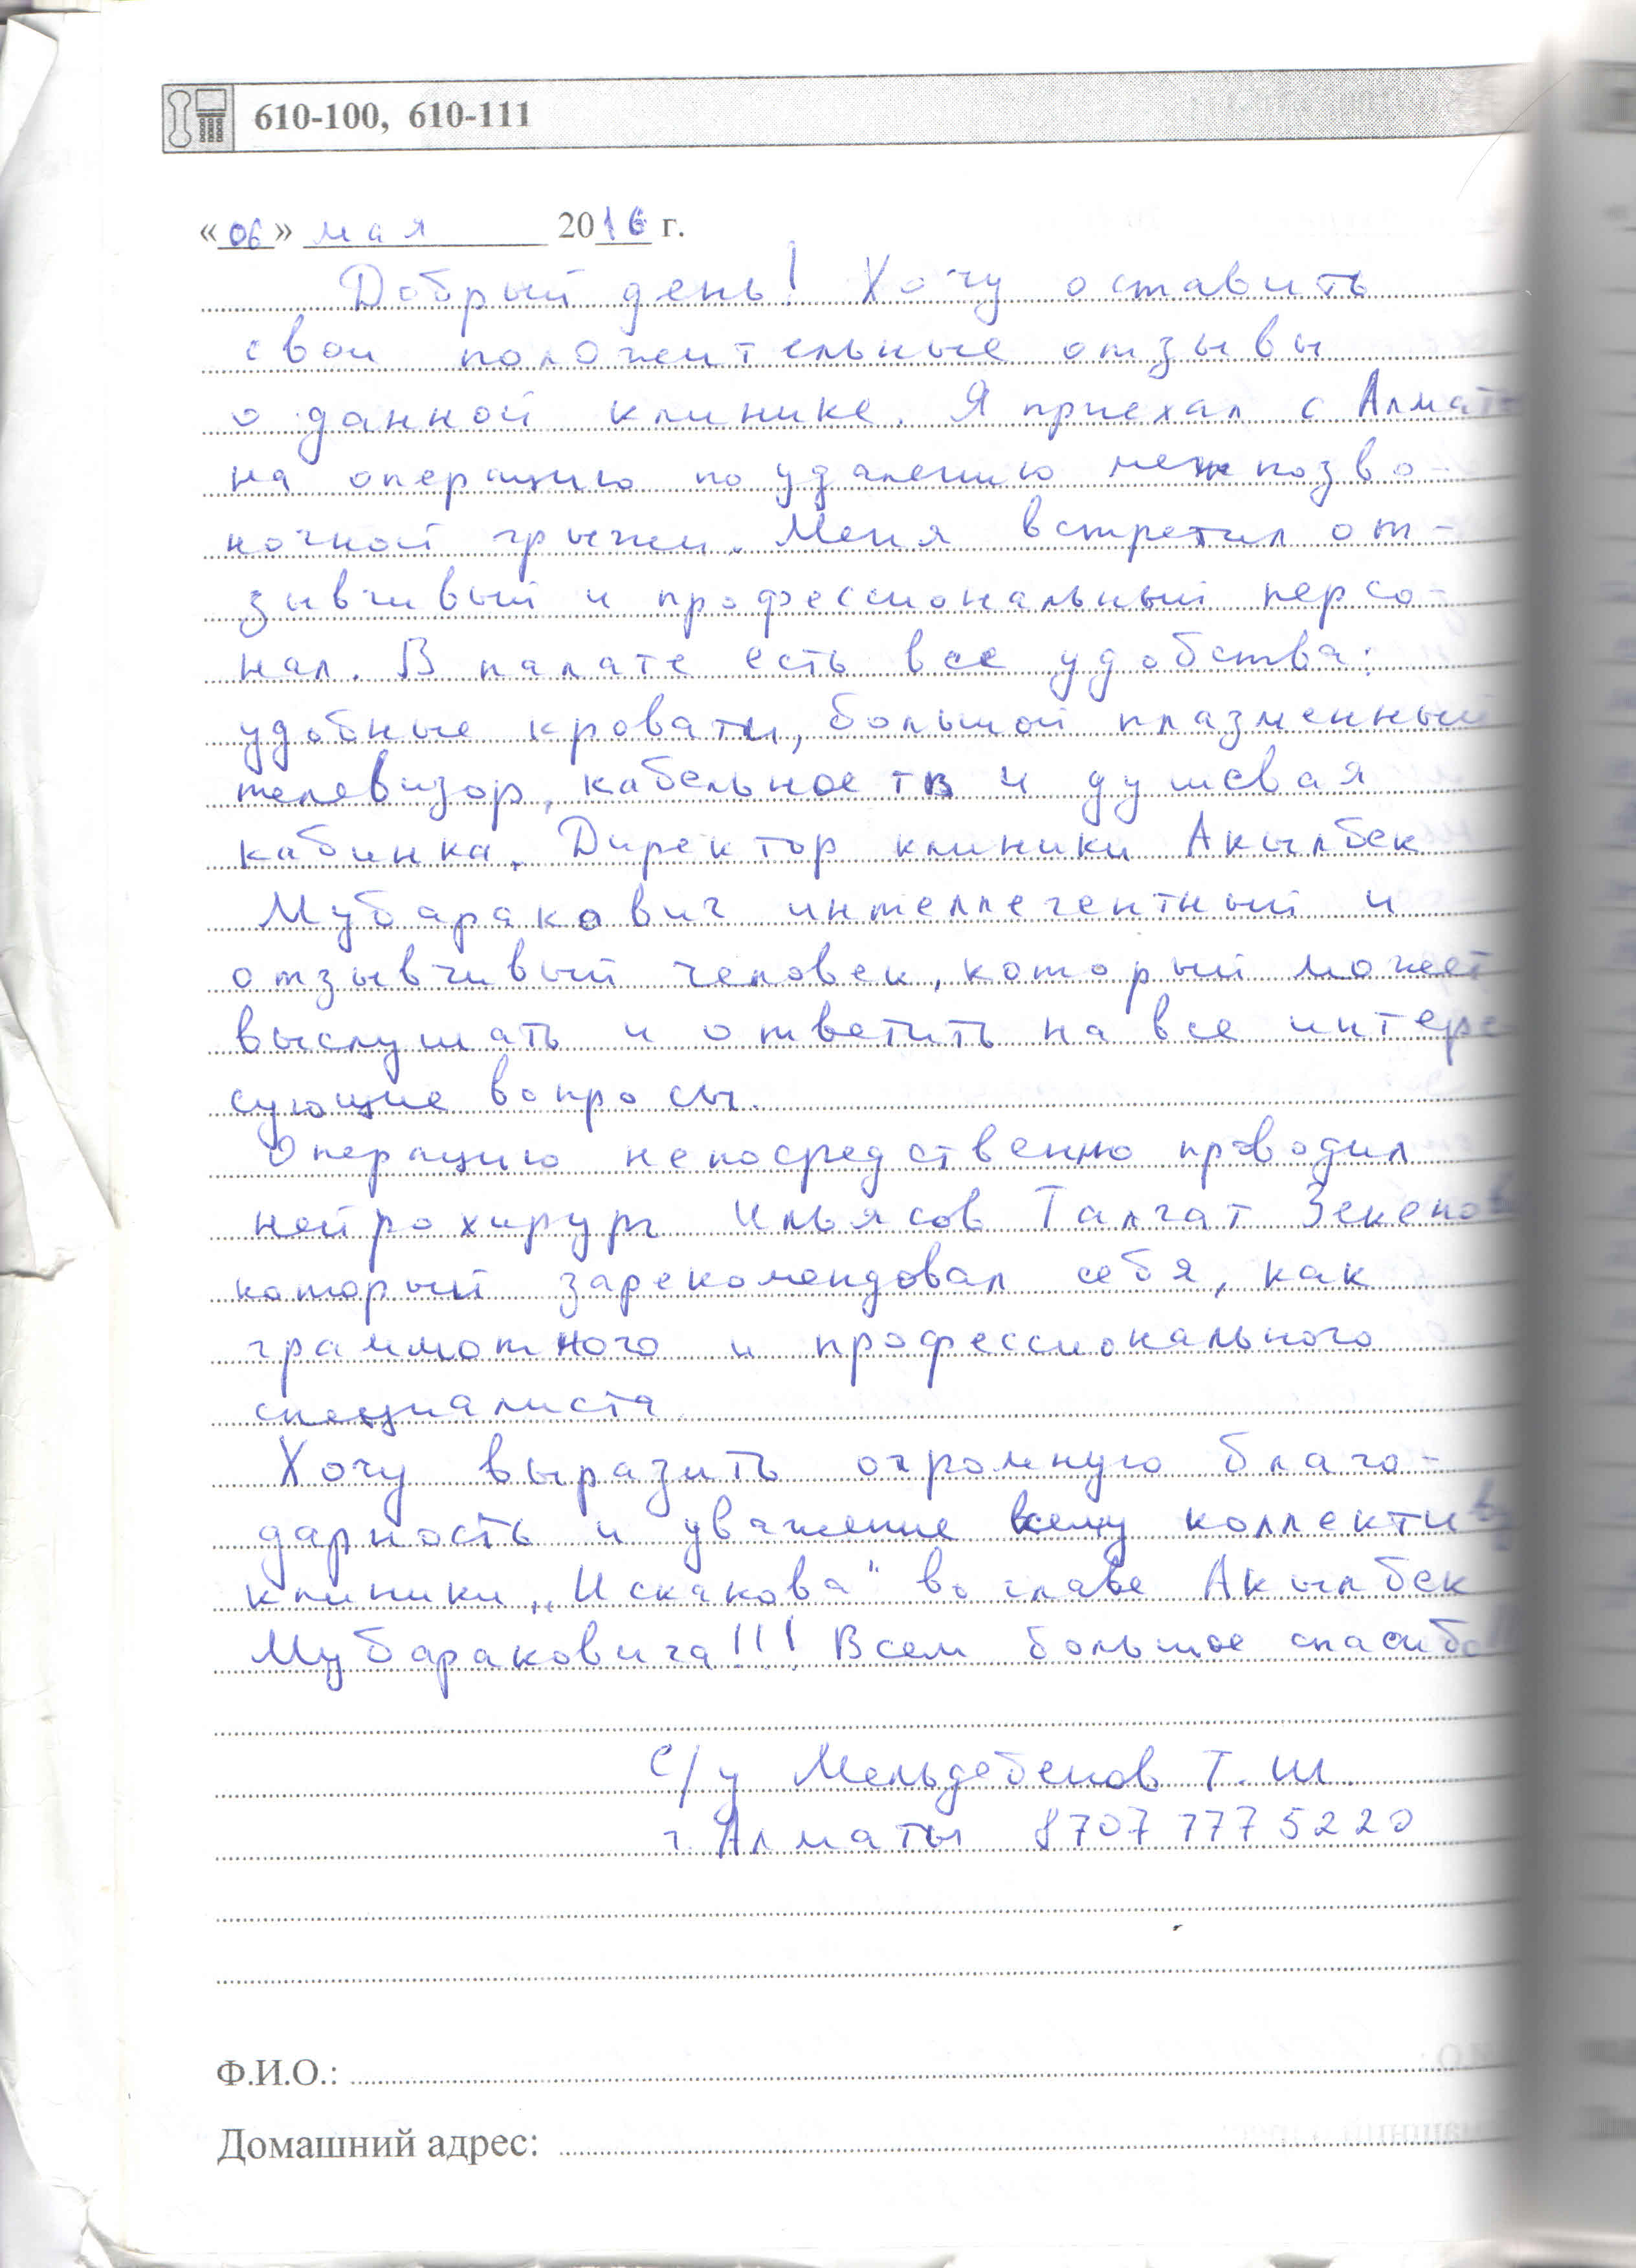 610-100, 610-111
«06» мая 2016 г.
Добрый день! Хочу оставить
свои положительные отзывы
о данной клинике. Я приехал с Алмат
на операцию по удалению межпозво-
ночной грыжи. Меня встретил от-
зывчивый и профессиональный персо-
нал. В палате есть все удобства:
удобные кровати, большой плазменный
телевизор, кабельное тв и душевая
кабинка. Директор клиники Акылбек
Мубаракович интеллегентный и
отзывчивый человек, который может
выслушать и ответить на все интере
сующие вопросы.
Операцию непосредственно проводил
нейрохирург Ильясов Талгат Зекенов
который зарекомендовал себя, как
граммотного и профессионального
специалиста
Хочу выразить огромную благо-
дарность и уважение всему коллектив
клиники „Искакова" во главе Акылбек
Мубараковича!!! Всем большое спасибо!!!
С/у Мельдебеков Т.Ш.
г. Алматы 8707 777 5220
Ф.И.О.:
Домашний адрес: